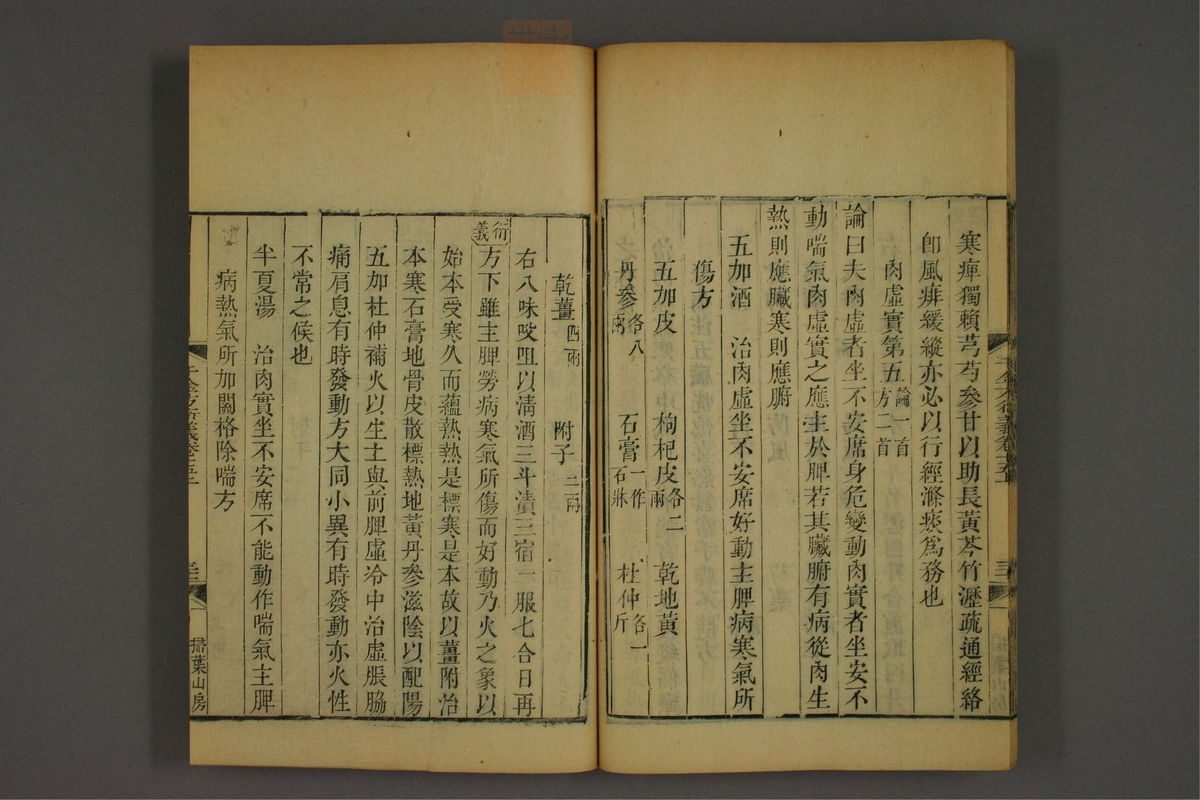 寒痺獨賴芎芍參甘以助長黃芩竹瀝疏通經絡
卽風痱緩縱亦必以行經滌痰爲務也
肉虛實第五論一首方二首
論曰夫肉虛者坐不安席身危變動肉實者坐安不
動喘氣肉虛實之應主於脾若其臟腑有病從肉生
熱則應臟寒則應腑
五加酒 治肉虛坐不安席好動主脾病寒氣所
傷方
五加皮 枸杞皮各二兩 乾地黃
丹參各八兩 石膏一作石牀 杜仲各一斤
乾薑四兩 附子二兩
右八味㕮咀以淸酒三斗漬三宿一服七合日再
衍義方下雖主脾勞病寒氣所傷而好動乃火之象以
始本受寒久而蘊熱熱是標寒是本故以薑附治
本寒石膏地骨皮散標熱地黃丹參滋陰以配陽
五加杜仲補火以生土與前脾虛冷中治虛脹脇
痛肩息有時發動方大同小異有時發動亦火性
不常之候也
半夏湯 治肉實坐不安席不能動作喘氣主脾
病熱氣所加關格除喘方
掃葉山房